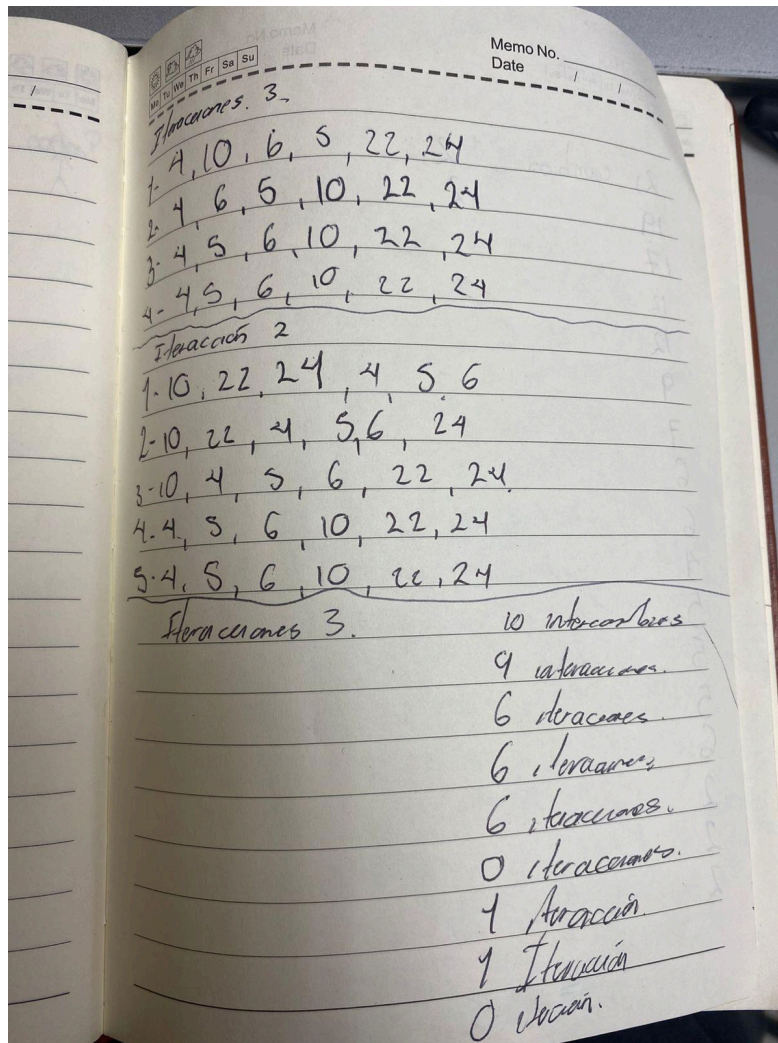 Memo No.
Date / /
Mo Tu We Th Fr Sa Su
Iteraciones. 3.
1- 4, 10, 6, 5, 22, 24
2- 4, 6, 5, 10, 22, 24
3- 4, 5, 6, 10, 22, 24
4- 4, 5, 6, 10, 22, 24
Iteracción 2
1- 10, 22, 24, 4, 5, 6
2- 10, 22, 4, 5, 6, 24
3- 10, 4, 5, 6, 22, 24.
4- 4, 5, 6, 10, 22, 24
5- 4, 5, 6, 10, 22, 24
Iteraciones 3.
10 intercambios
9 interacciones.
6 iteraciones.
6 iteraciones
6 iteraciones.
0 iteraciones.
1 Iteracción
1 Iteración
0